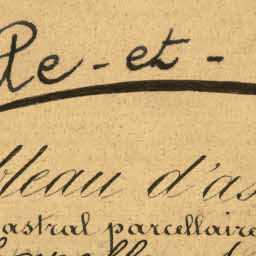 Re-et-
bleau d'as
astral parcellaire